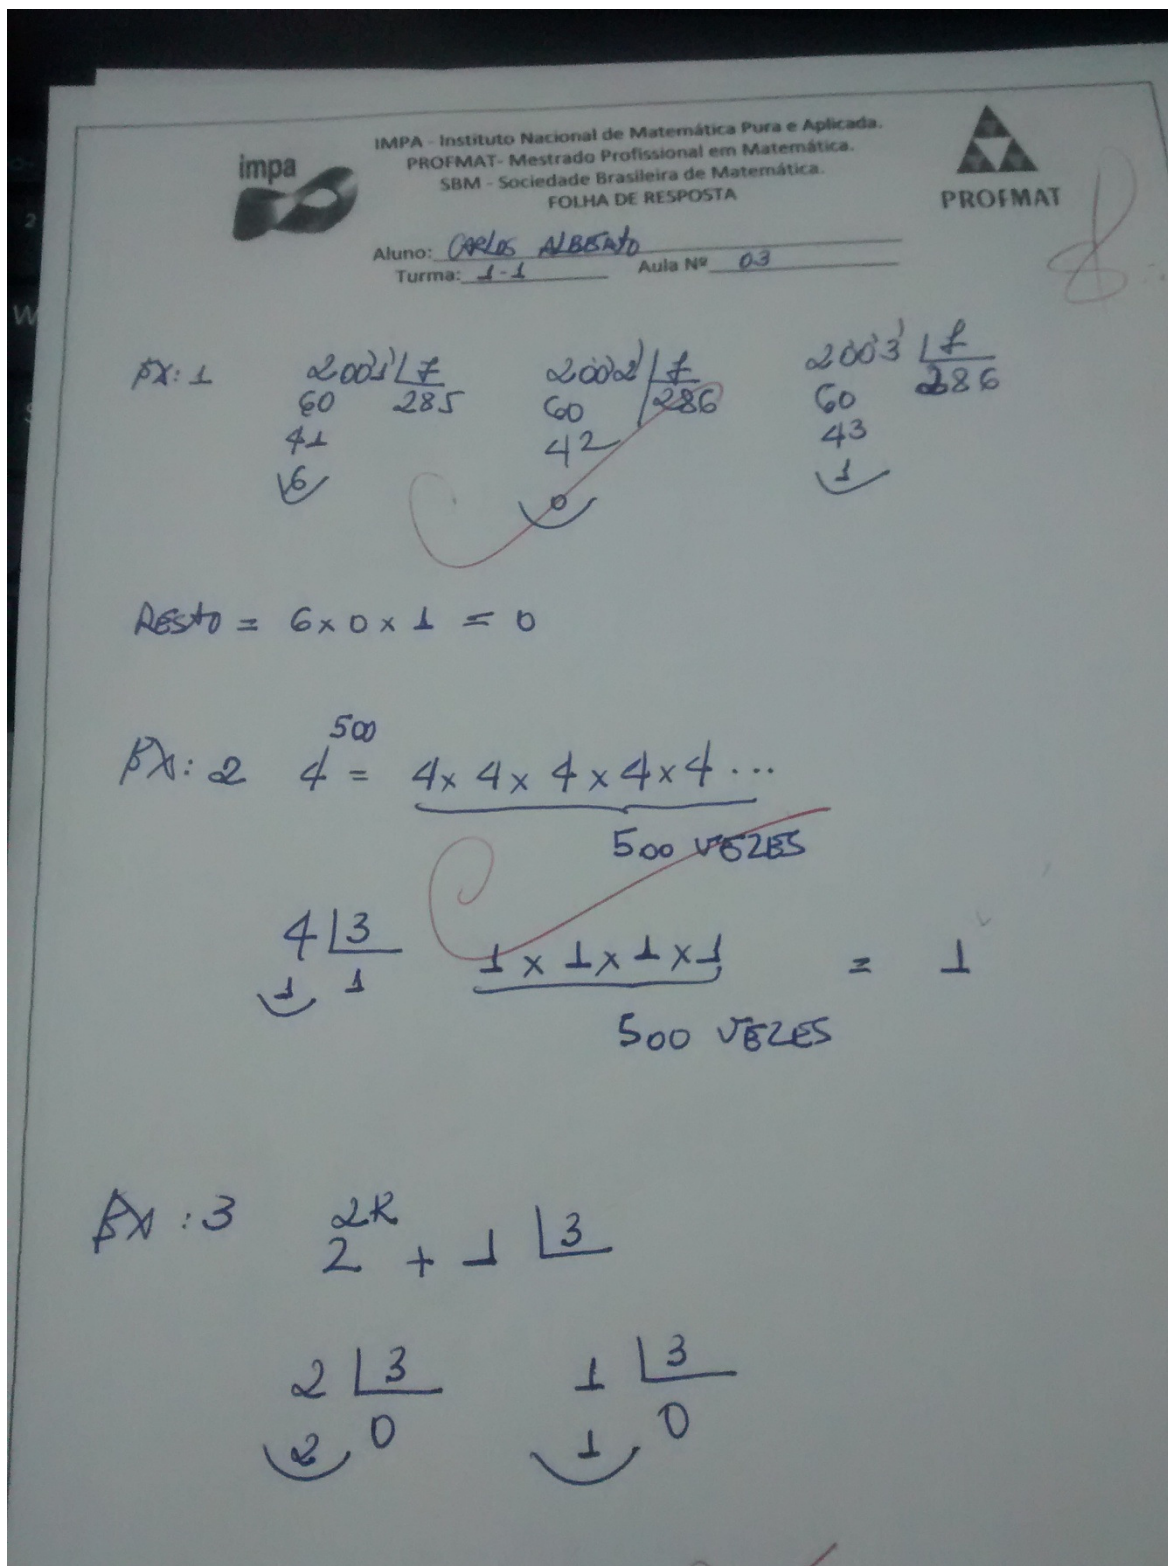 impa
IMPA - Instituto Nacional de Matemática Pura e Aplicada.
PROFMAT- Mestrado Profissional em Matemática.
SBM - Sociedade Brasileira de Matemática.
FOLHA DE RESPOSTA
PROFMAT
Aluno: CARLOS ALBERTO
Turma: 1-1 Aula Nº 03
EX: 1 2001 7 2002 7 2003 7
60 285 60 286 60 286
41 42 43
6 0 1
RESTO = 6 x 0 x 1 = 0
EX: 2 4^500 = 4 x 4 x 4 x 4 x 4 ...
500 VEZES
4 3
1 1 1 x 1 x 1 x 1 = 1
500 VEZES
EX: 3 2^2K + 1 3
2 3 1 3
2 0 1 0